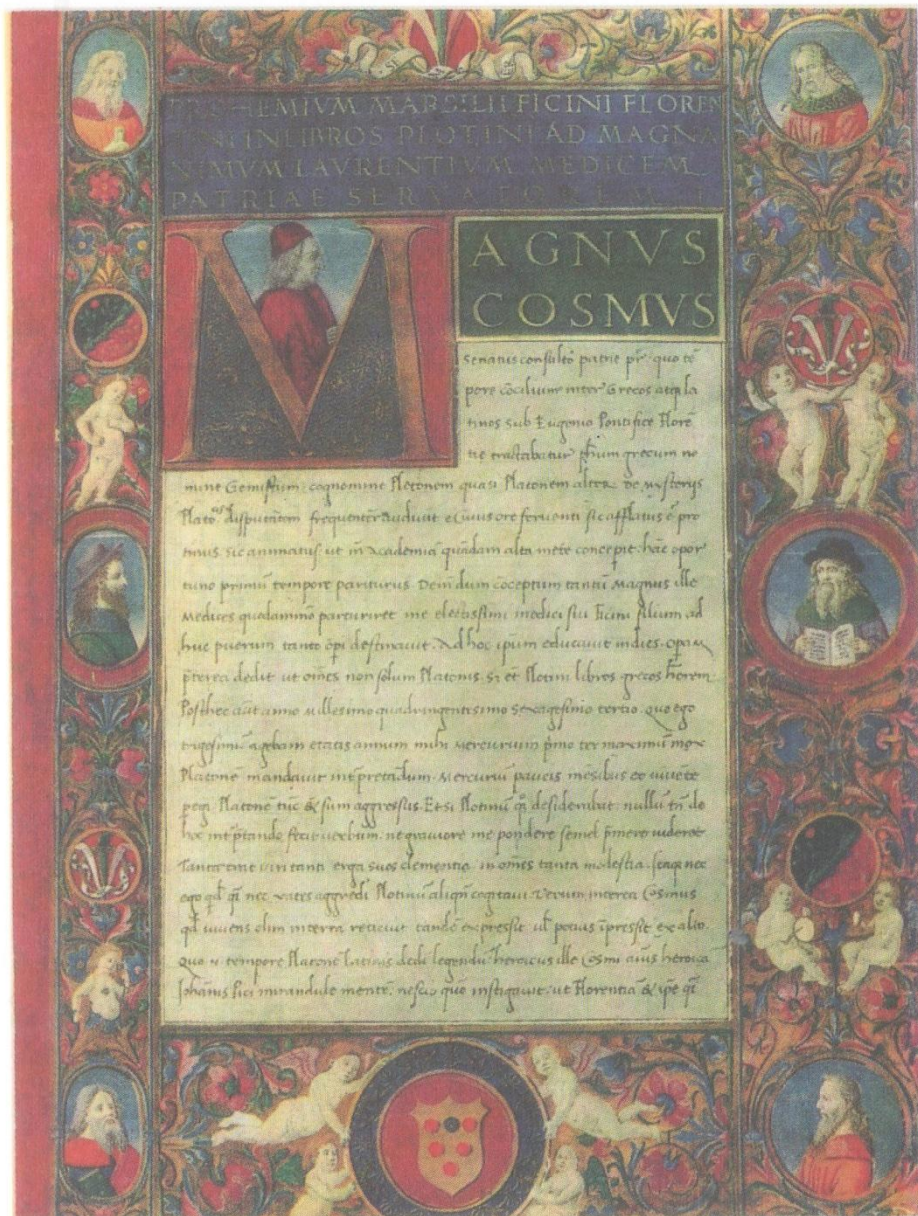 PROHEMIVM MARSILII FICINI FLOREN
TINI IN LIBROS PLOTINI AD MAGNA
NIMVM LAVRENTIVM MEDICEM
PATRIAE SERVATOREM
MAGNVS
COSMVS
Senatus consulto patrie pr̄ quo tē
pore cōcilium inter Grecos atq̨ la
tinos sub Eugenio Pontifice Florē
tie tractabatur phūm grecum no
mine Gemistum cognomine Pletonem quasi Platonem alterū De mysterijs
Platoⁿⁱᶜⁱˢ disputātem frequenter audiuit e cuius ore feruenti sic afflatus ē pro
tinus sic animatus ut in Academiā quādam alta mēte conceperit hāc opor
tuno primū tempore pariturus. Dein dum cōceptum tantū Magnus ille
Medices quodāmō parturiret me electissimi medici sui Ficini filium ad
huc puerum tanto opi destinauit. Ad hoc ipūm educauit indies. opam
p̄terea dedit ut oēs non solum Platonis. sz et Plotini libros grecos hērem
Posthec aūt anno Millesimo quadringentisimo Sexagesimo tertio. quo ego
trigesimū agebam etatis annum mihi Mercurium p̄mo ter maximū mox
Platonē mandauit int̄pretādum. Mercuriū paucis mēsibus eo uiuēte
pegi Platonē tūc & sum aggressus. Etsi Plotinū q̨ desiderabat. nullū tn̄ de
hoc int̄ptando fecit uerbum. ne grauiore me pondere semel p̄mere uideret
Tanta erat uiri tanti erga suos clementia. in omēs tanta modestia. Itaq̨ nec
ego qd̄ q̄i nec uates aggredi Plotinū aliqn̄ cogitaui. Verum interea Cosmus
qd̄ uiuens olim interra reticuit tandē expressit ul̄ potius īpressit ex alto.
Quo n̄ tempore Platonē Latinis dedi legendū heroicus ille Cosmi aīus heroicā
Johānis Pici mirandule mentē. nescio quō instigauit. ut Florentiā & ipē q̄i